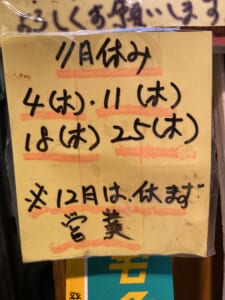 よろしくお願いします
11月休み
4(木)・11(木)
18(木) 25(木)
※12月は、休まず
営業
モ
発